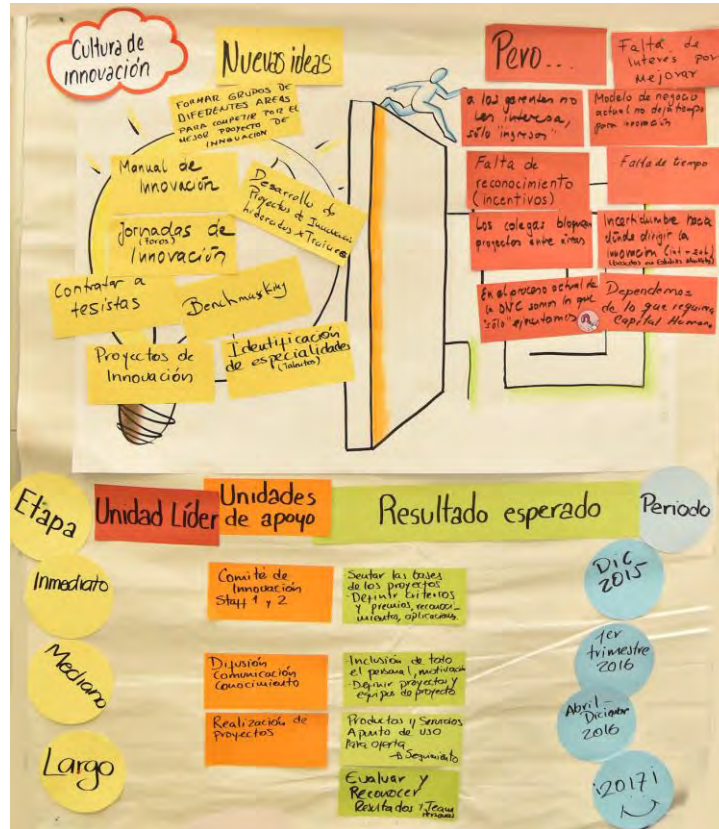 Cultura de
innovación
Nuevas ideas
FORMAR GRUPOS DE
DIFERENTES AREAS
PARA COMPETIR POR EL
MEJOR PROYECTO DE
INNOVACION
Manual de
Innovación
Desarrollo de
Proyectos de Innovación
Liderados x Trainees
Jornadas de
(Foros)
Innovación
Contratar a
tesistas
Benchmarking
Proyectos de
Innovación
Identificación
de especialidades
(Talentos)
Pero...
Falta de
interes por
Mejorar
a los gerentes no
les interesa,
sólo "ingresos"
Modelo de negocio
actual no deja tiempo
para innovación
Falta de
reconocimiento
(incentivos)
Falta de tiempo
Los colegas bloquean
proyectos entre áreas
Incertidumbre hacia
dónde dirigir la
innovación
En el proceso actual de
la DNC somos lo que
"sólo" ejecutamos
Dependemos
de lo que requiera
Capital Humano
Etapa
Unidad Líder
Unidades
de apoyo
Resultado esperado
Periodo
Inmediato
Comité de
Innovación
Staff 1 y 2
Sentar las bases
de los proyectos
-Definir criterios
y premios, reconoci-
mientos, aplicaciones.
DIC
2015
Mediano
Difusión
Comunicación
Conocimiento
Inclusión de todo
el personal, motivación
-Definir proyectos y
equipos de proyecto
1er
trimestre
2016
Realización de
proyectos
Productos y Servicios
A punto de uso
para oferta
→ Seguimiento
Abril-
Diciembre
2016
Largo
Evaluar y
Reconocer
Resultados y Team
¡2017!